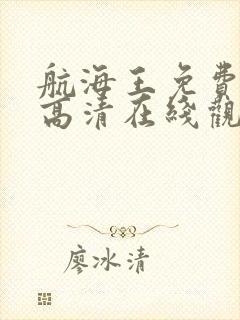 航海王免費
高清在綫觀
廖冰清